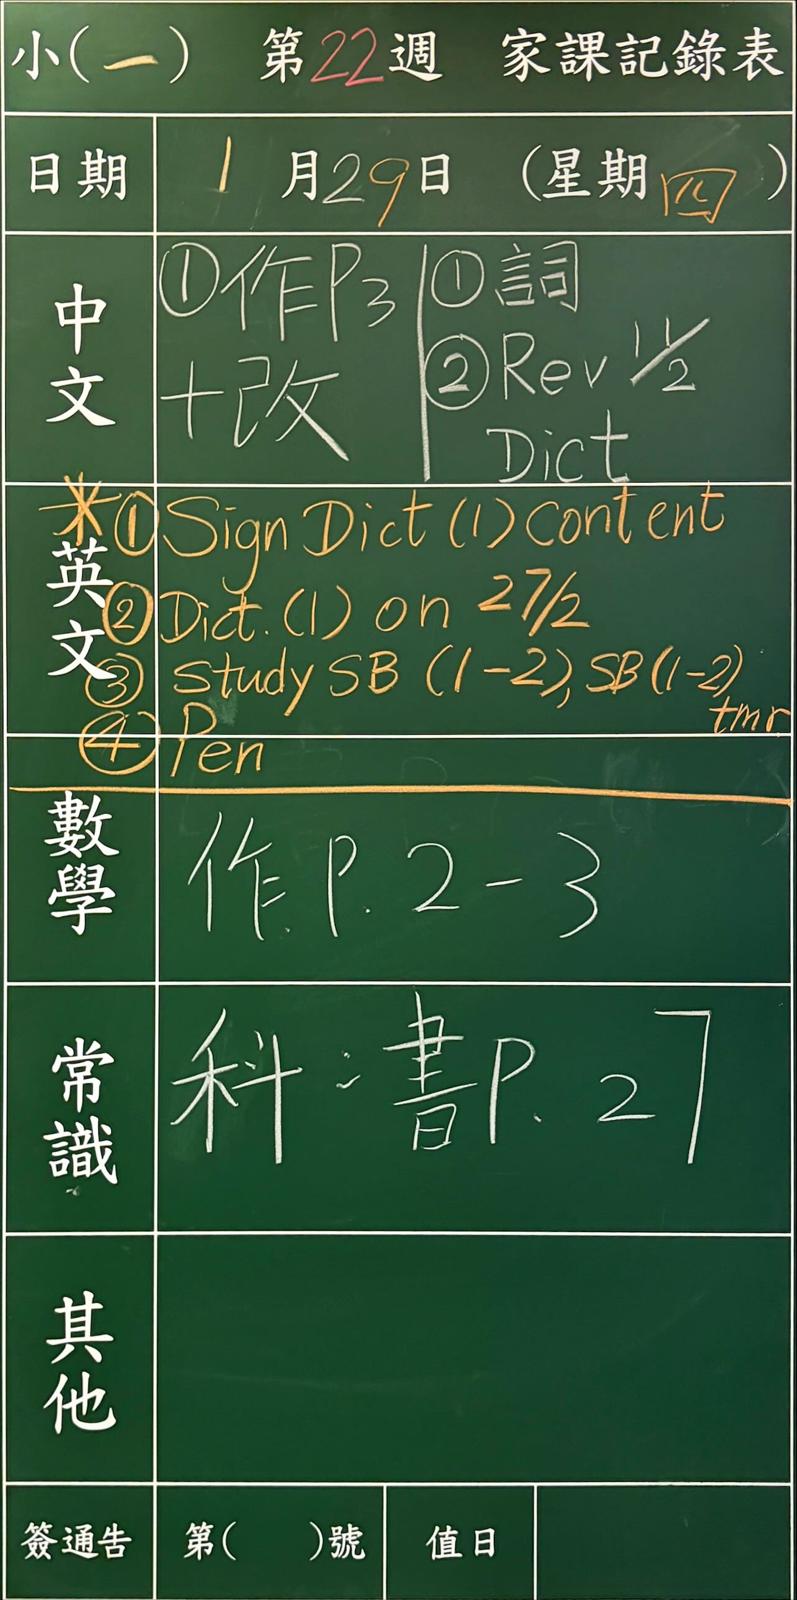 小(一) 第22週 家課記錄表
日期 1月29日 (星期四)
中文
①作P3
+改
①詞
②Rev 11/2
Dict
英文
*①Sign Dict (1) content
②Dict. (1) on 27/2
③study SB (1-2), SB (1-2)
tmr
④Pen
數學
作.P. 2-3
常識
科:書P. 27
其他
簽通告 第( )號 值日